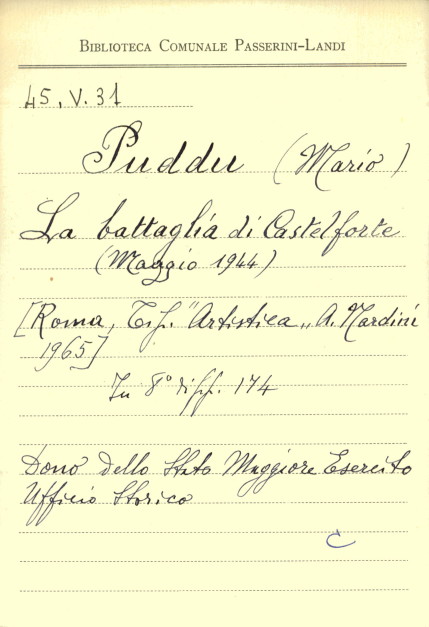 BIBLIOTECA COMUNALE PASSERINI-LANDI
45. V. 31
Puddu (Mario)
La battaglia di Castelforte
(Maggio 1944)
[Roma, Tip. "Artistica" A. Nardini
1965]
In 8° di pp. 174
Dono dello Stato Maggiore Esercito
Ufficio Storico
C